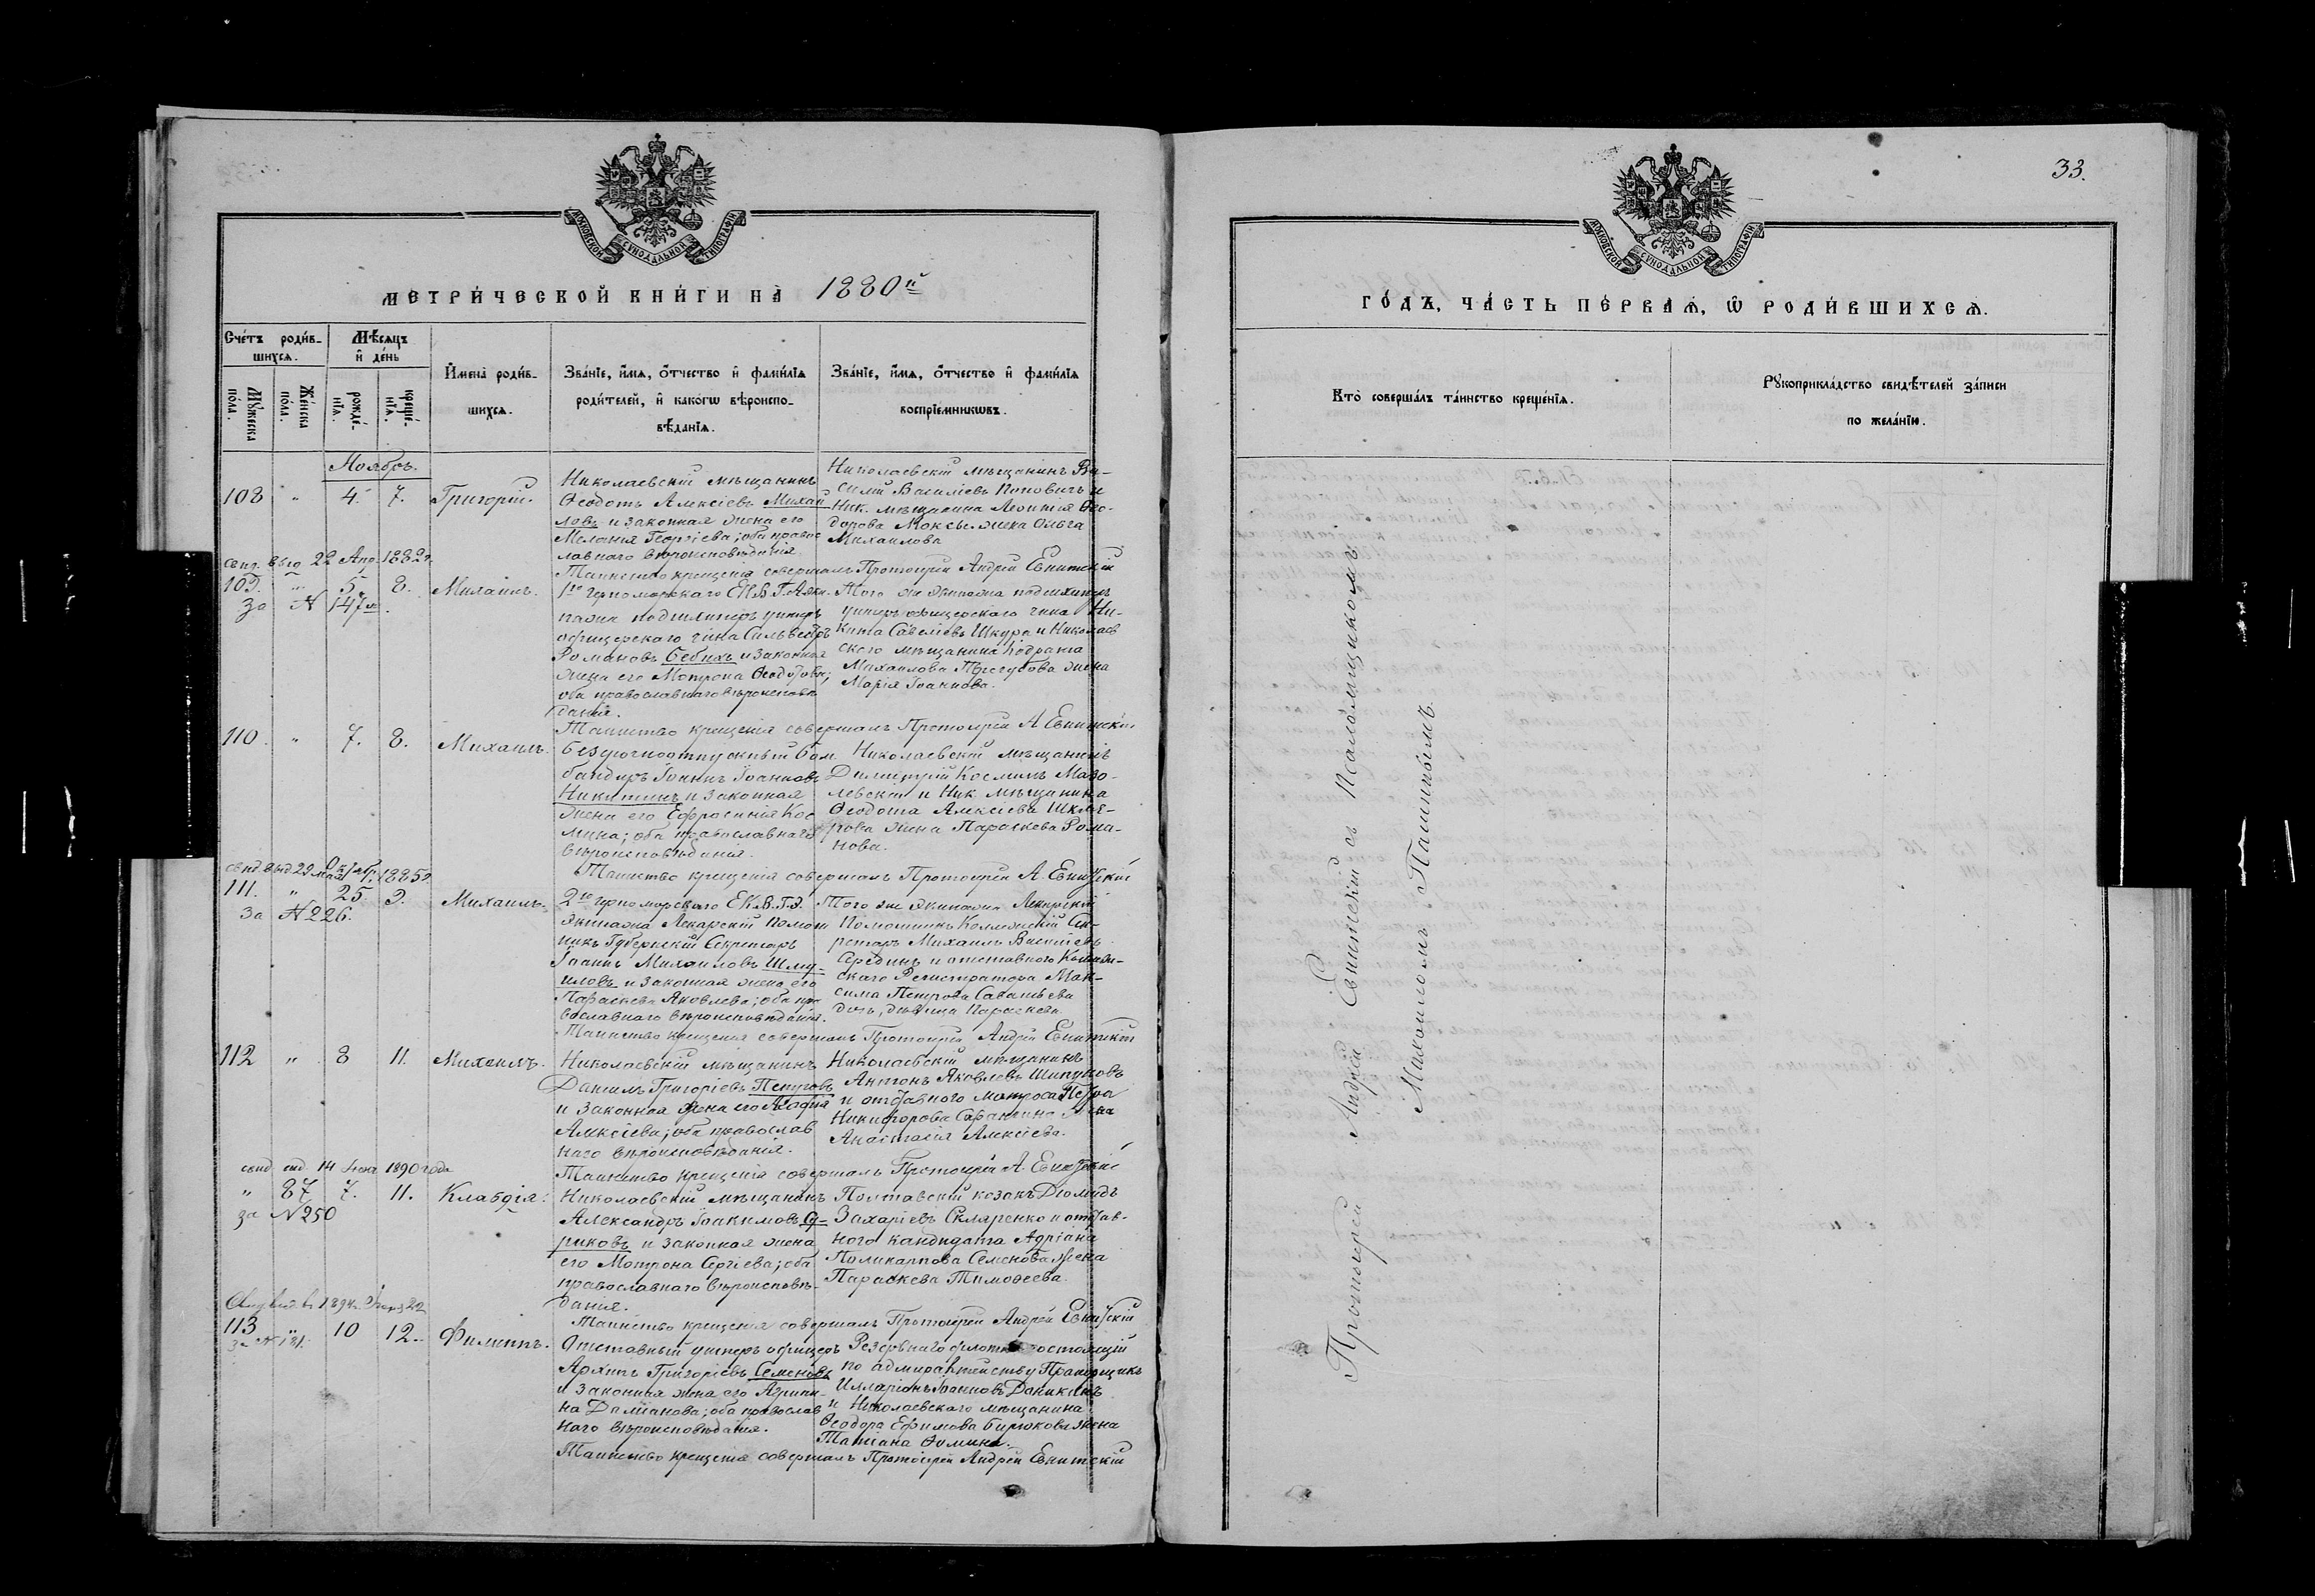 МОСКОВСКОЙ СУНОДАЛЬНОЙ ТИПОГРАФІИ
МЕТРИ́ЧЕСКОЙ КНИ́ГИ НА̀ 1880й
Сче́тъ роди́в-
шихсѧ.
Мѣ́сѧцъ
и҆ де́нь
Мꙋ́жеска по́ла.
Же́нска по́ла.
рожде́-нїѧ.
креще́-нїѧ.
И҆мена̀ роди́в-
шихсѧ.
Зва́нїе, и҆́мѧ, о҆́тчество и҆ фами́лїѧ
роди́телей, и҆ како́гѡ вѣроиспо-
вѣ́данїѧ.
Зва́нїе, и҆́мѧ, о҆́тчество и҆ фами́лїѧ
воспрїе́мникѡвъ.
Ноябрь.
108 " 4. 7. Григорій.
Николаевскій мѣщанинъ
Ѳеодотъ Алексіевъ Михай
ловъ и законная жена его
Меланія Георгіева; оба правос
лавнаго вѣроисповѣданія.
Николаевскій мѣщанинъ Ва-
силій Василіевъ Поповичъ и
Ник. мѣщанина Леонтія Ѳео-
дорова жена Ольга
Михаилова
Таинство крещенія совершалъ Протоіерей Андрей Евнитскій
22 Апр. 1882г.
109. " 5. 8. Михаилъ.
за № 147
1го Черноморскаго Е.К.В.Г.А. эки-
пажа унтеръ
офицерскаго чина Сильвестръ
Романовъ Бебихъ и законная
жена его Матрона Ѳеодотова;
оба православнаго вѣроисповѣ
данія.
Того же экипажа
унтеръ офицерскаго чина Ни-
кита Савеліевъ Шкура и Николаев
скаго мѣщанина Кодрата
Михаилова жена
Марія Іоаннова.
Таинство крещенія совершалъ Протоіерей А. Евнитскій
110. " 7. 8. Михаилъ.
безсрочноотпускный бом
бандиръ Іоаннъ Іоанновъ
Никитинъ и законная
жена его Ефросинія Кос
мина; оба православнаго
вѣроисповѣданія.
Николаевскій мѣщанинъ
Димитрій Косминъ Мало-
левскій и Ник. мѣщанина
Ѳеодота Алексіева Шкля-
рова жена Параскева Рома-
нова.
Таинство крещенія совершалъ Протоіерей А. Евнитскій
111. " 25. 9. Михаилъ.
за № 226.
2го Черноморскаго Е.К.В.Г.Э.
экипажа Лекарскій помощ
никъ Губернскій Секретарь
Іоаннъ Михаиловъ Шму-
иловъ и законная жена его
Параскева Яковлева; оба пра
вославнаго вѣроисповѣданія.
Того же экипажа Лекарскій
Помощникъ Коллежскій Сек-
ретарь Михаилъ
Середин и отставного Коллеж-
скаго Регистратора Мак-
сима Петрова Саватьева
дочь, дѣвица Параскева.
Таинство крещенія совершалъ Протоіерей Андрей Евнитскій
112 " 8 11. Михаилъ.
Николаевскій мѣщанинъ
Даниилъ Григоріевъ Петровъ
и законная жена его Агафія
Алексіева; оба православ
наго вѣроисповѣданія.
Николаевскій мѣщанинъ
Антонъ Яковлевъ Шипуновъ
и отставного матроса Петра
Никифорова жена
Анастасія Алексіева.
Таинство крещенія совершалъ Протоіерей А. Евнитскій
свид. выд. 14 1890 года
" 87 7. 11. Клавдія.
за № 250
Николаевскій мѣщанинъ
Александръ Іоакимовъ Су-
риковъ и законная жена
его Матрона Сергіева; оба
православнаго вѣроисповѣ-
данія.
Полтавскій козакъ Діомидъ
Захаріевъ Скляренко и отстав-
ного кандидата Адріана
Поликарпова Семенова жена
Параскева Тимоѳеева.
Таинство крещенія совершалъ Протоіерей Андрей Евнитскій
113 " 10 12. Филиппъ.
за № 181.
Отставный унтеръ офицеръ
Архипъ Григоріевъ Семеновъ
и законная жена его Агрипи-
на Даміанова; оба православ
наго вѣроисповѣданія.
Резервнаго флота состоящій
по адмиралтейству Прапорщикъ
Илларіонъ Іоанновъ Даникинъ
и Николаевского мѣщанина
Ѳеодора Ефимова Бирюкова жена
Татіана Ѳомина.
Таинство крещенія совершалъ Протоіерей Андрей Евнитскій
33.
МОСКОВСКОЙ СУНОДАЛЬНОЙ ТИПОГРАФІИ
ГО́ДЪ, ЧА́СТЬ ПЕ́РВАѦ, Ѡ҆ РОДИ́ВШИХСѦ.
Кто̀ соверша́лъ та́инство креще́нїѧ.
Рꙋкоприкла́дство свидѣ́телей за́писи
по жела́нїю.
Протоіерей Андрей Евнитскій съ Псаломщикомъ
Михаиломъ Пашинымъ.